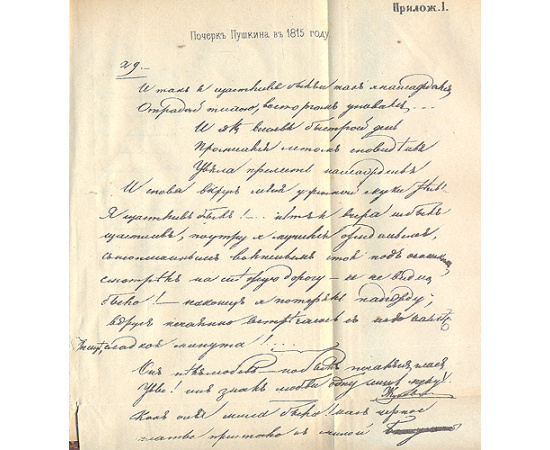 Прилож. I.
Почеркъ Пушкина въ 1815 году
29.
И такъ я щастливъ былъ, и такъ я наслаждался,
Отрадой тихою, восторгомъ упивался . . .
И гдѣ веселья быстрой день
Промчался лѣтомъ сновидѣнья
Увяла прелесть наслажденья
И снова вкругъ меня угрюмой скуки тѣнь!
Я щастливъ былъ! . . нѣтъ я вчера не былъ
щастливъ, поутру я мучился ожиданьемъ,
съ неописаннымъ волненьемъ стоя подъ окошкомъ
смотрѣлъ на снѣжную дорогу — ее не видно
было! — наконецъ я потерялъ надежду,
вдругъ нечаянно встрѣчаюсь съ нею на лѣст
ницѣ, сладкая минута! ! . . .
Онъ пѣлъ любовь — но былъ печаленъ гласъ
Увы! онъ зналъ любви одну лишь муку!
Жуковскій
Какъ она мила была! какъ черное
платье пристало къ милой